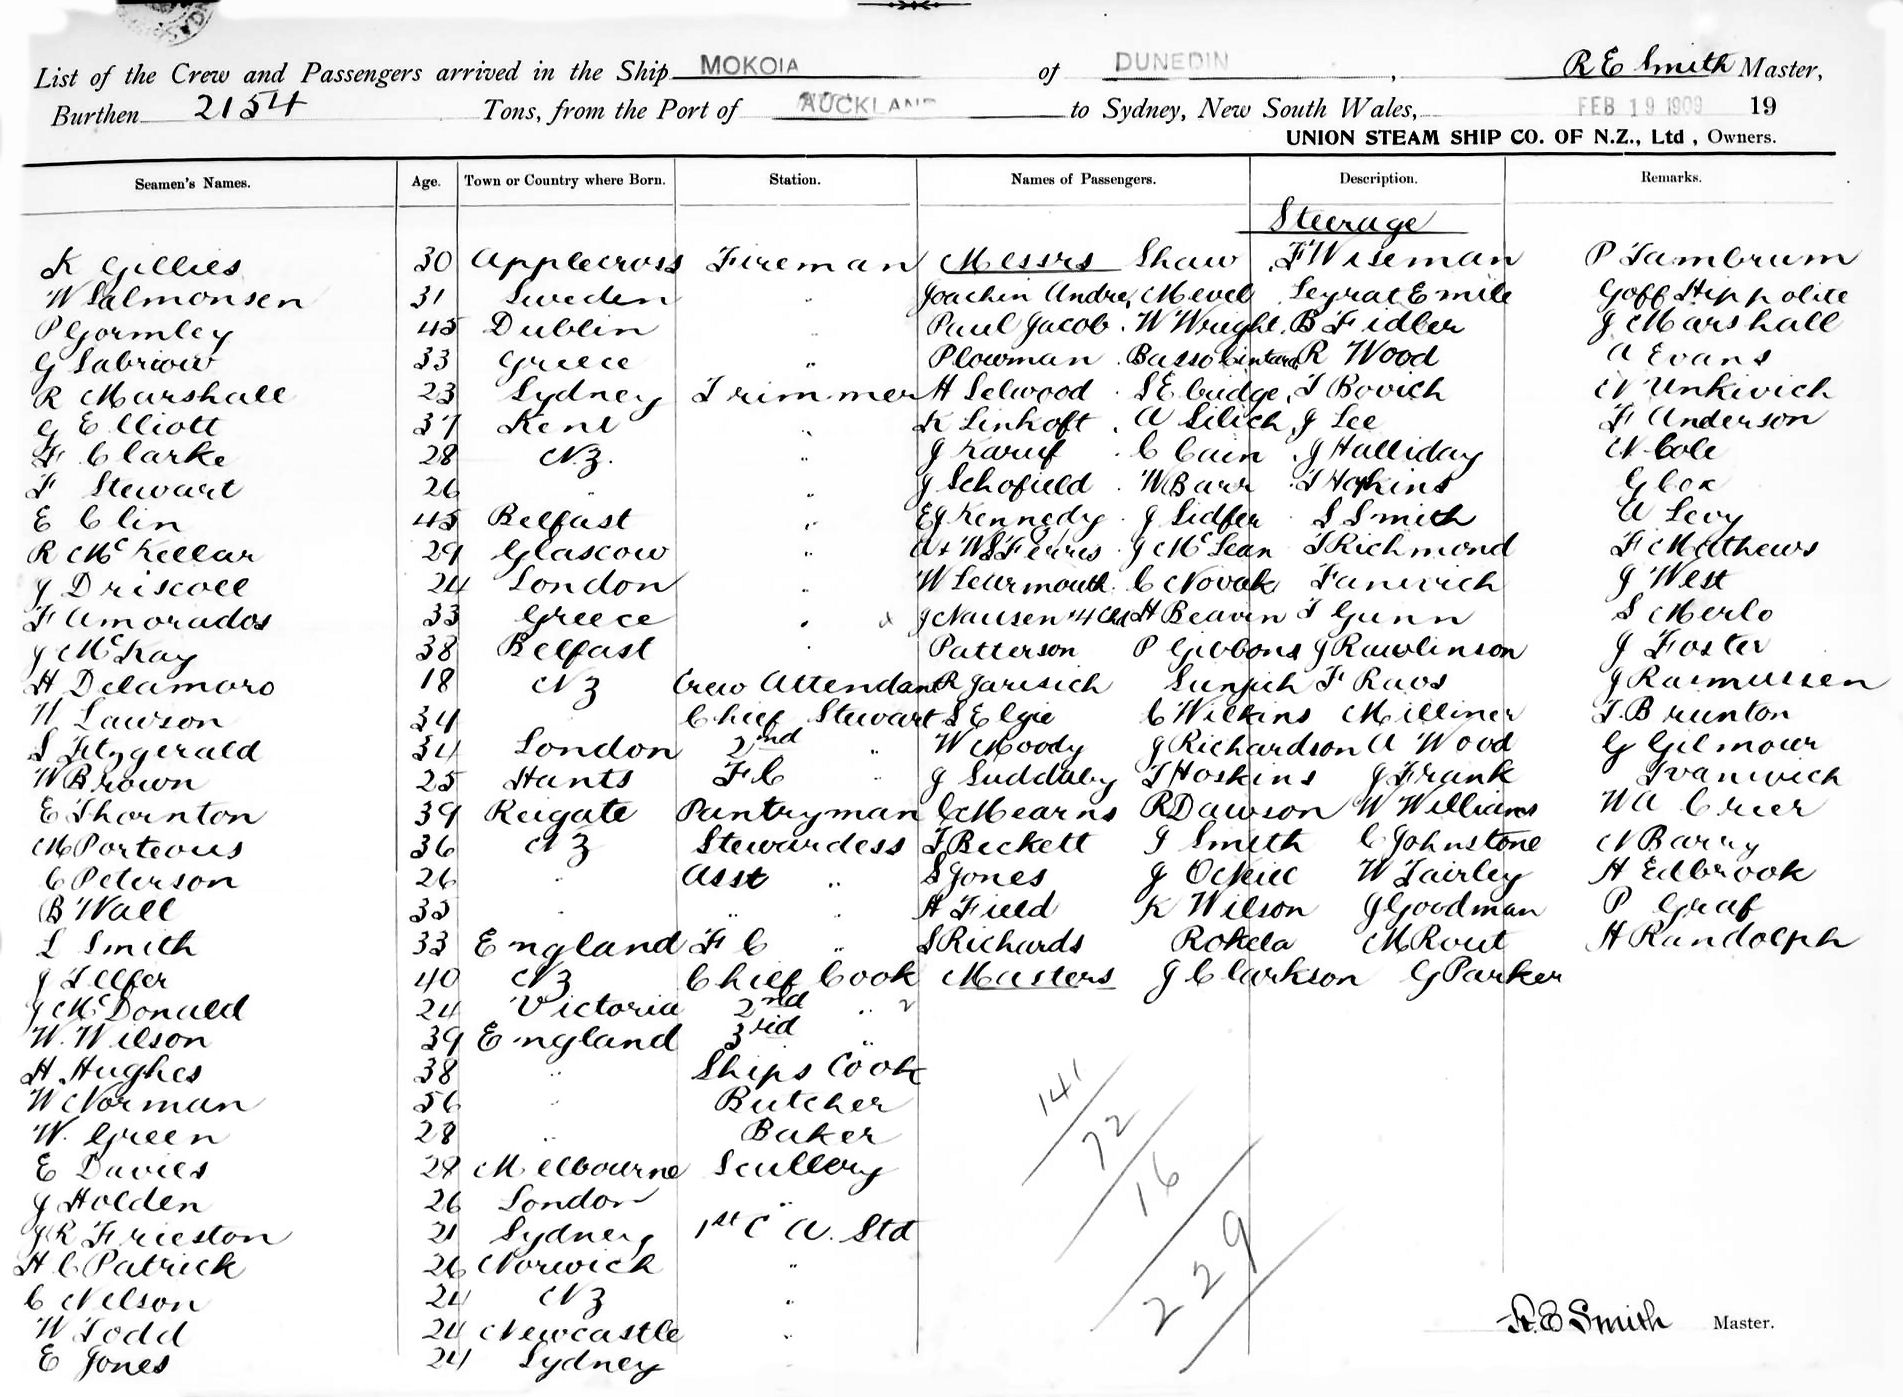 List of the Crew and Passengers arrived in the Ship MOKOIA of DUNEDIN, R E Smith Master,
Burthen 2154 Tons, from the Port of AUCKLAND to Sydney, New South Wales, FEB 19 1909 19
UNION STEAM SHIP CO. OF N.Z., Ltd, Owners.
Seamen's Names. Age. Town or Country where Born. Station. Names of Passengers. Description. Remarks.
Steerage
K Gillies 30 Applecross Fireman Messrs Shaw F Wiseman P Tambrum
W Salmonsen 31 Sweden " Joachin Andre, Mevel Leyrat Emile Goff Hippolite
P Gormley 45 Dublin " Paul Jacob. W Wright. B Fidler J Marshall
G Labriow 33 Greece " Plowman Basso R Wood A Evans
R Marshall 23 Sydney Trimmer H Selwood S Ebridge, T Bovich N Unkivich
G Elliott 37 Kent " K Linhoft A Silich J Lee F Anderson
F Clarke 28 N.Z. " J Karuf C Cain J Halliday N Cole
F Stewart 26 " " J Schofield W Barr T Hopkins G Cox
E Clin 45 Belfast " E J Kennedy J Sidfer S Smith A Levy
R McKellar 29 Glascow " A + W S Ferris J McLean T Richmond F Mathews
J Driscoll 24 London " W Learmouth C Novak Fanvich J West
F Amorados 33 Greece " J Nausen "4 Chd H Beavin T Gunn S Merlo
J McKay 38 Belfast " Patterson P Gibbons J Rawlinson J Foster
H Delamoro 18 NZ Crew Attendant R Jarisich Sunjich F Raos J Rasmussen
H Lawson 34 Chief Stewart S Elgie C Wilkins Milliner T. Brunton
S Fitzgerald 34 London 2nd " W Moody J Richardson A Wood G Gilmour
W Brown 25 Hants F C " J Suddaby T Hoskins J Frank Ivanvich
E Thornton 39 Reigate Pantryman C Mearns R Dawson W Williams W A Crier
M Porteous 36 NZ Stewardess T Beckett T Smith C Johnstone N Barry
C Peterson 26 " Asst " S Jones J Ockill W Fairley H Edbrook
B Wall 35 " " " H Field K Wilson J Goodman P Graf
L Smith 33 England F C " S Richards Rokela M Rout H Randolph
J Telfer 40 NZ Chief Cook Masters J Clarkson G Parker
J McDonald 24 Victoria 2nd "
W. Wilson 39 England 3rd "
H Hughes 38 " Ships Cook
W Norman 56 " Butcher
W. Green 28 " Baker
E Davies 29 Melbourne Scullery
J Holden 26 London "
J R Frieston 21 Sydney 1st C A. Std
H C Patrick 26 Norwich "
C Nelson 24 NZ "
W Todd 24 Newcastle "
E Jones 24 Sydney "
141
72
16
229
R. E Smith Master.